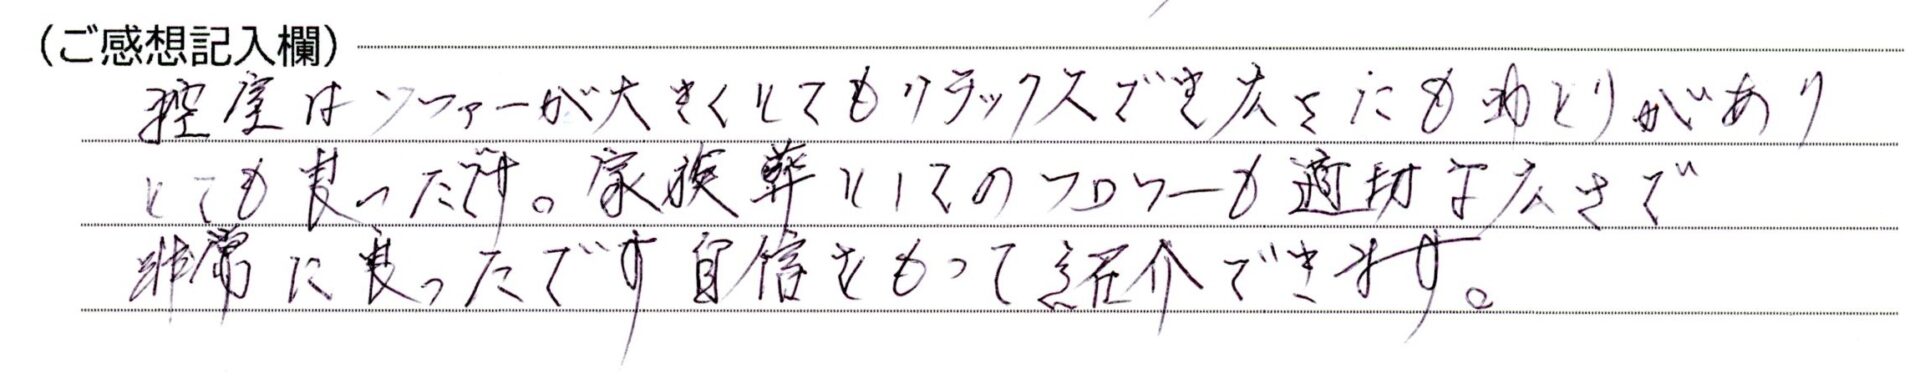 (ご感想記入欄)
控室はソファーが大きくとてもリラックスでき広さにもゆとりがあり
とても良ったです。家族葬としてのフロワーも適切な広さで
非常に良ったです自信をもって紹介できます。